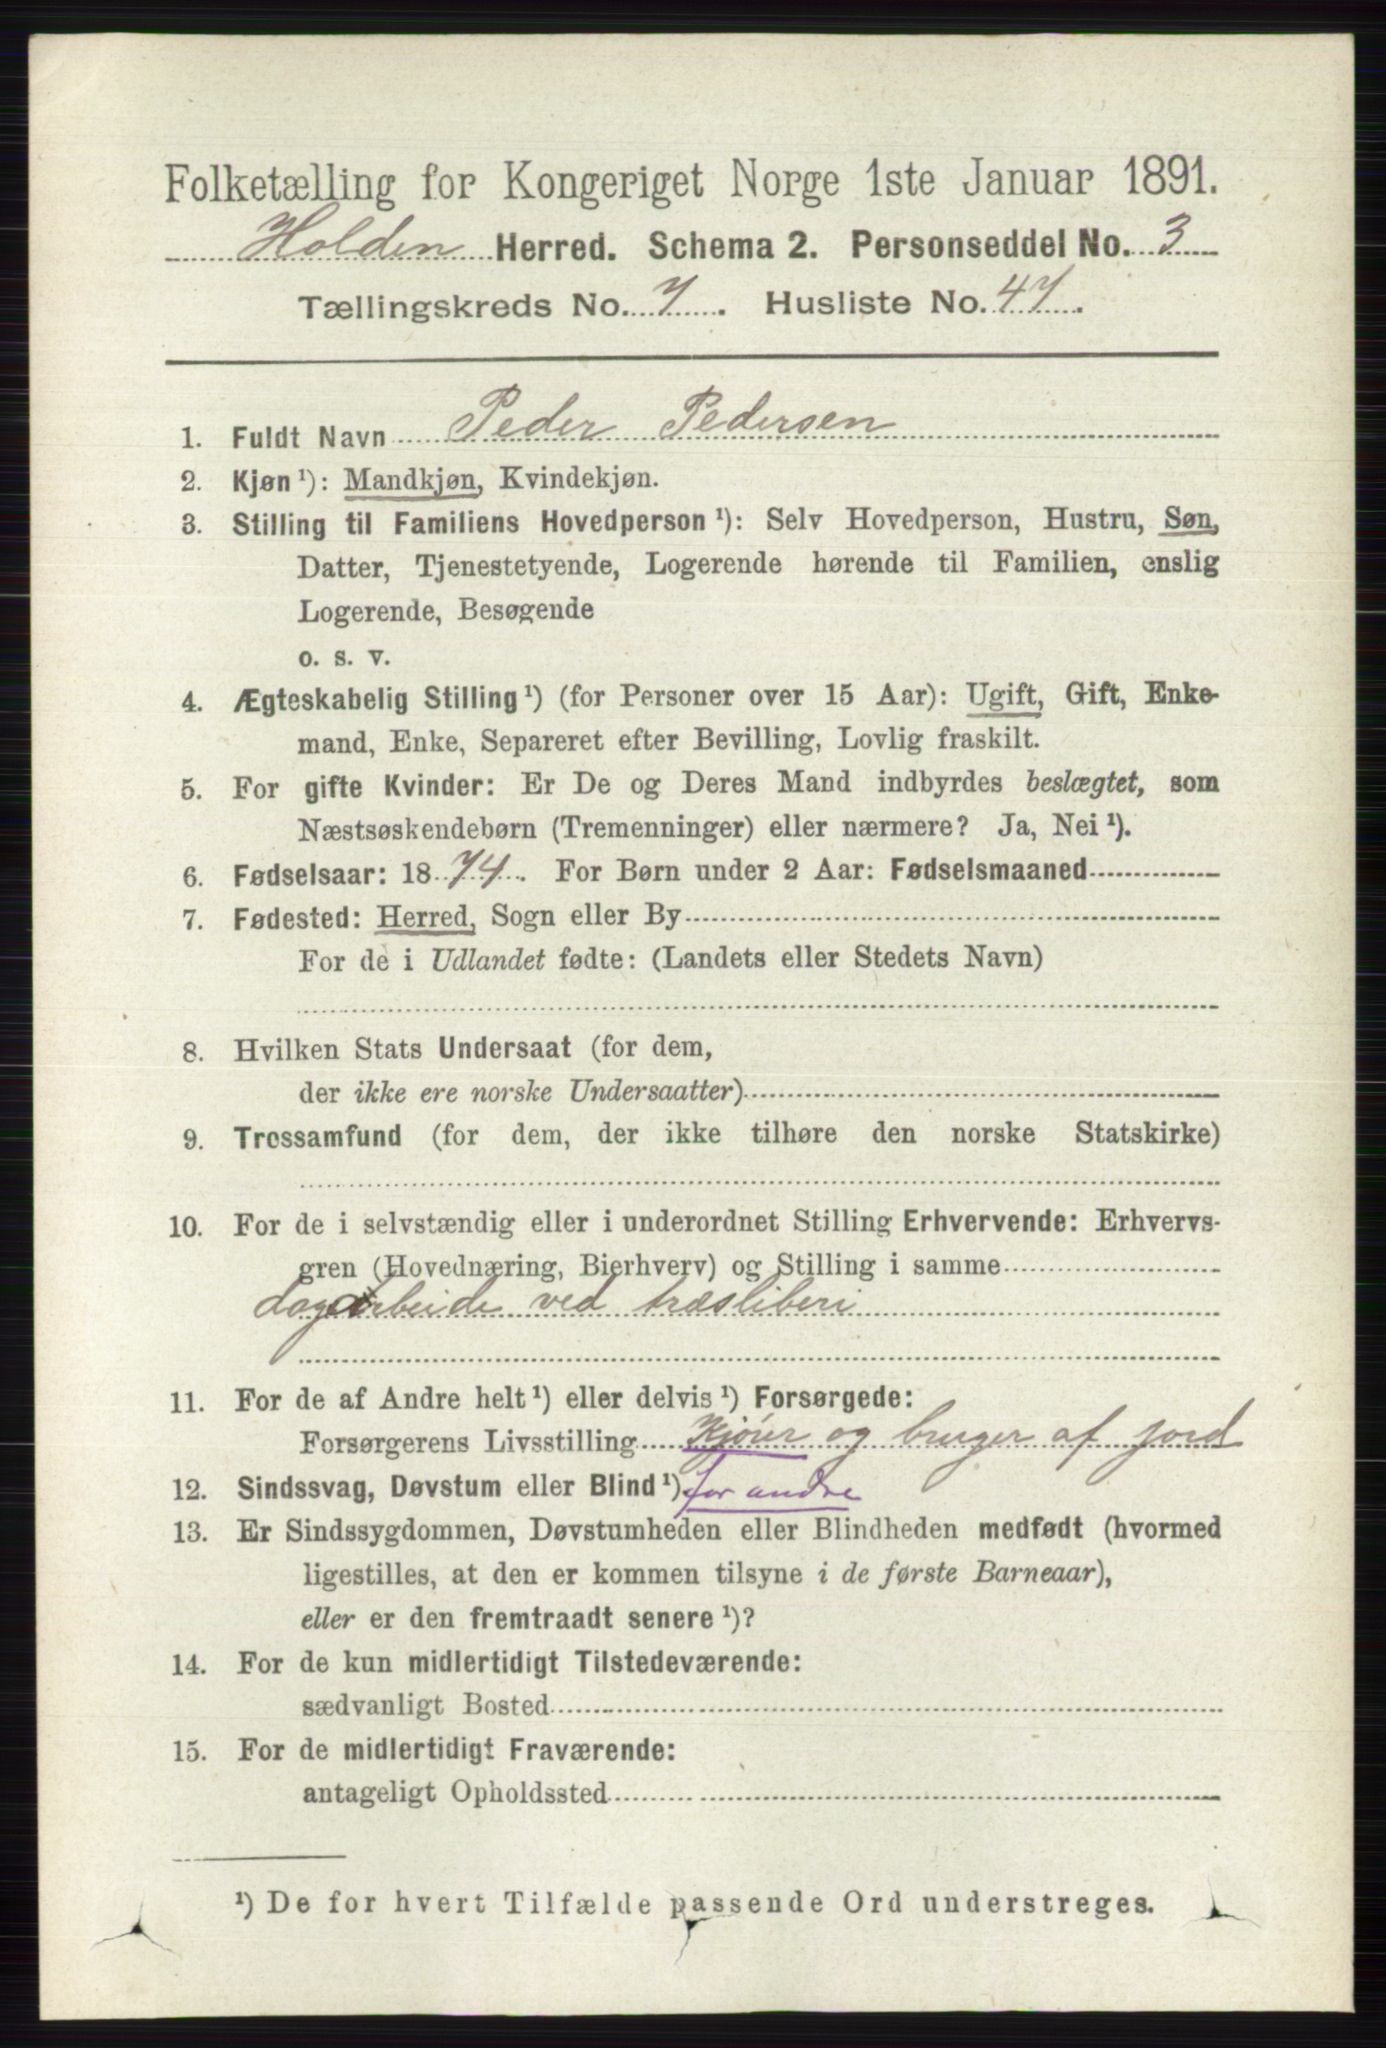 Folketælling for Kongeriget Norge 1ste Januar 1891.
Holden Herred. Schema 2. Personseddel No. 3
Tællingskreds No. 7. Husliste No. 47.
1. Fuldt Navn Peder Pedersen
2. Kjøn ¹): Mandkjøn, Kvindekjøn.
3. Stilling til Familiens Hovedperson ¹): Selv Hovedperson, Hustru, Søn,
Datter, Tjenestetyende, Logerende hørende til Familien, enslig
Logerende, Besøgende
o. s. v.
4. Ægteskabelig Stilling ¹) (for Personer over 15 Aar): Ugift, Gift, Enke-
mand, Enke, Separeret efter Bevilling, Lovlig fraskilt.
5. For gifte Kvinder: Er De og Deres Mand indbyrdes beslægtet, som
Næstsøskendebørn (Tremenninger) eller nærmere? Ja, Nei ¹).
6. Fødselsaar: 1874. For Børn under 2 Aar: Fødselsmaaned
7. Fødested: Herred, Sogn eller By
For de i Udlandet fødte: (Landets eller Stedets Navn)
8. Hvilken Stats Undersaat (for dem,
der ikke ere norske Undersaatter)
9. Trossamfund (for dem, der ikke tilhøre den norske Statskirke)
10. For de i selvstændig eller i underordnet Stilling Erhvervende: Erhvervs-
gren (Hovednæring, Bierhverv) og Stilling i samme
dagarbeide ved træsliberi
11. For de af Andre helt ¹) eller delvis ¹) Forsørgede:
Forsørgerens Livsstilling Kjører og bruger af jord
12. Sindssvag, Døvstum eller Blind ¹) for andre
13. Er Sindssygdommen, Døvstumheden eller Blindheden medfødt (hvormed
ligestilles, at den er kommen tilsyne i de første Barneaar),
eller er den fremtraadt senere ¹)?
14. For de kun midlertidigt Tilstedeværende:
sædvanligt Bosted
15. For de midlertidigt Fraværende:
antageligt Opholdssted
¹) De for hvert Tilfælde passende Ord understreges.